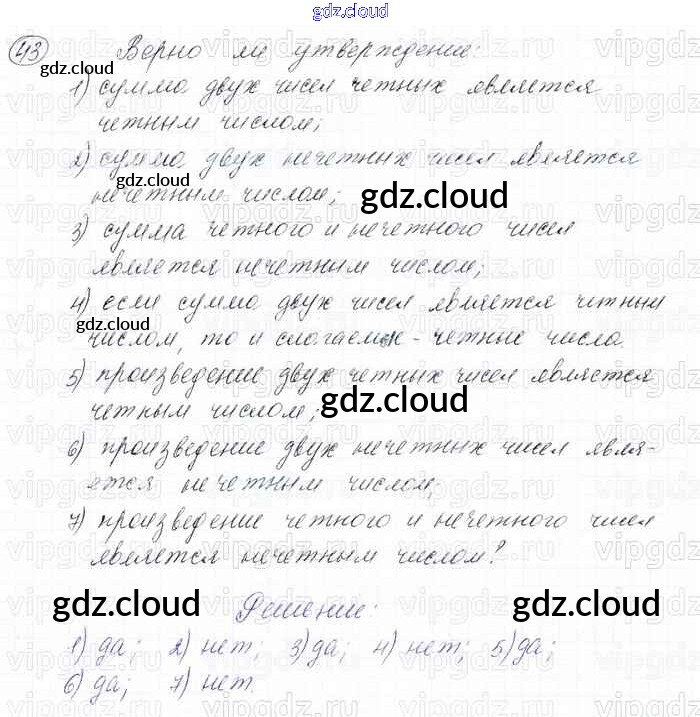 gdz.cloud
43 Верно ли утверждение:
gdz.cloud
1) сумма двух чисел четных является
четным числом;
2) сумма двух нечетных чисел является
gdz.cloud
нечетным числом;
gdz.cloud
3) сумма четного и нечетного чисел
является нечетным числом;
4) если сумма двух чисел является четным
gdz.cloud
числом, то и слагаемые - четные числа.
5) произведение двух четных чисел является
четным числом;
gdz.cloud
6) произведение двух нечетных чисел явля-
ется нечетным числом;
7) произведение четного и нечетного чисел
является нечетным числом?
gdz.cloud Решение: gdz.cloud
1) да; 2) нет; 3) да; 4) нет; 5) да;
6) да; 7) нет.